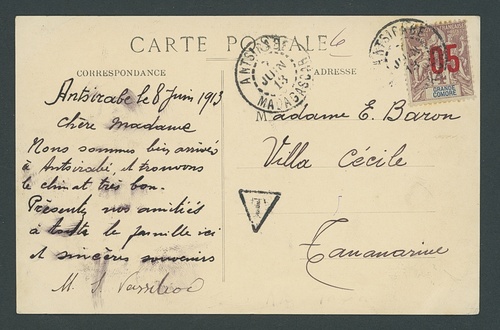 CARTE POSTALE 6
ANTSIRABE
JUIN
13
MADAGASCAR
ANTSIRABE
05
GRANDE
COMORE
CORRESPONDANCE
ADRESSE
Antsirabe le 8 Juin 1913
Chère Madame
Nous sommes bien arrivés
à Antsirabé, et trouvons
le climat très bon.
Présentez nos amitiés
à toute la famille ici
et sincères souvenirs
M. S.
Madame E. Baron
Villa Cécile
T
Tananarive